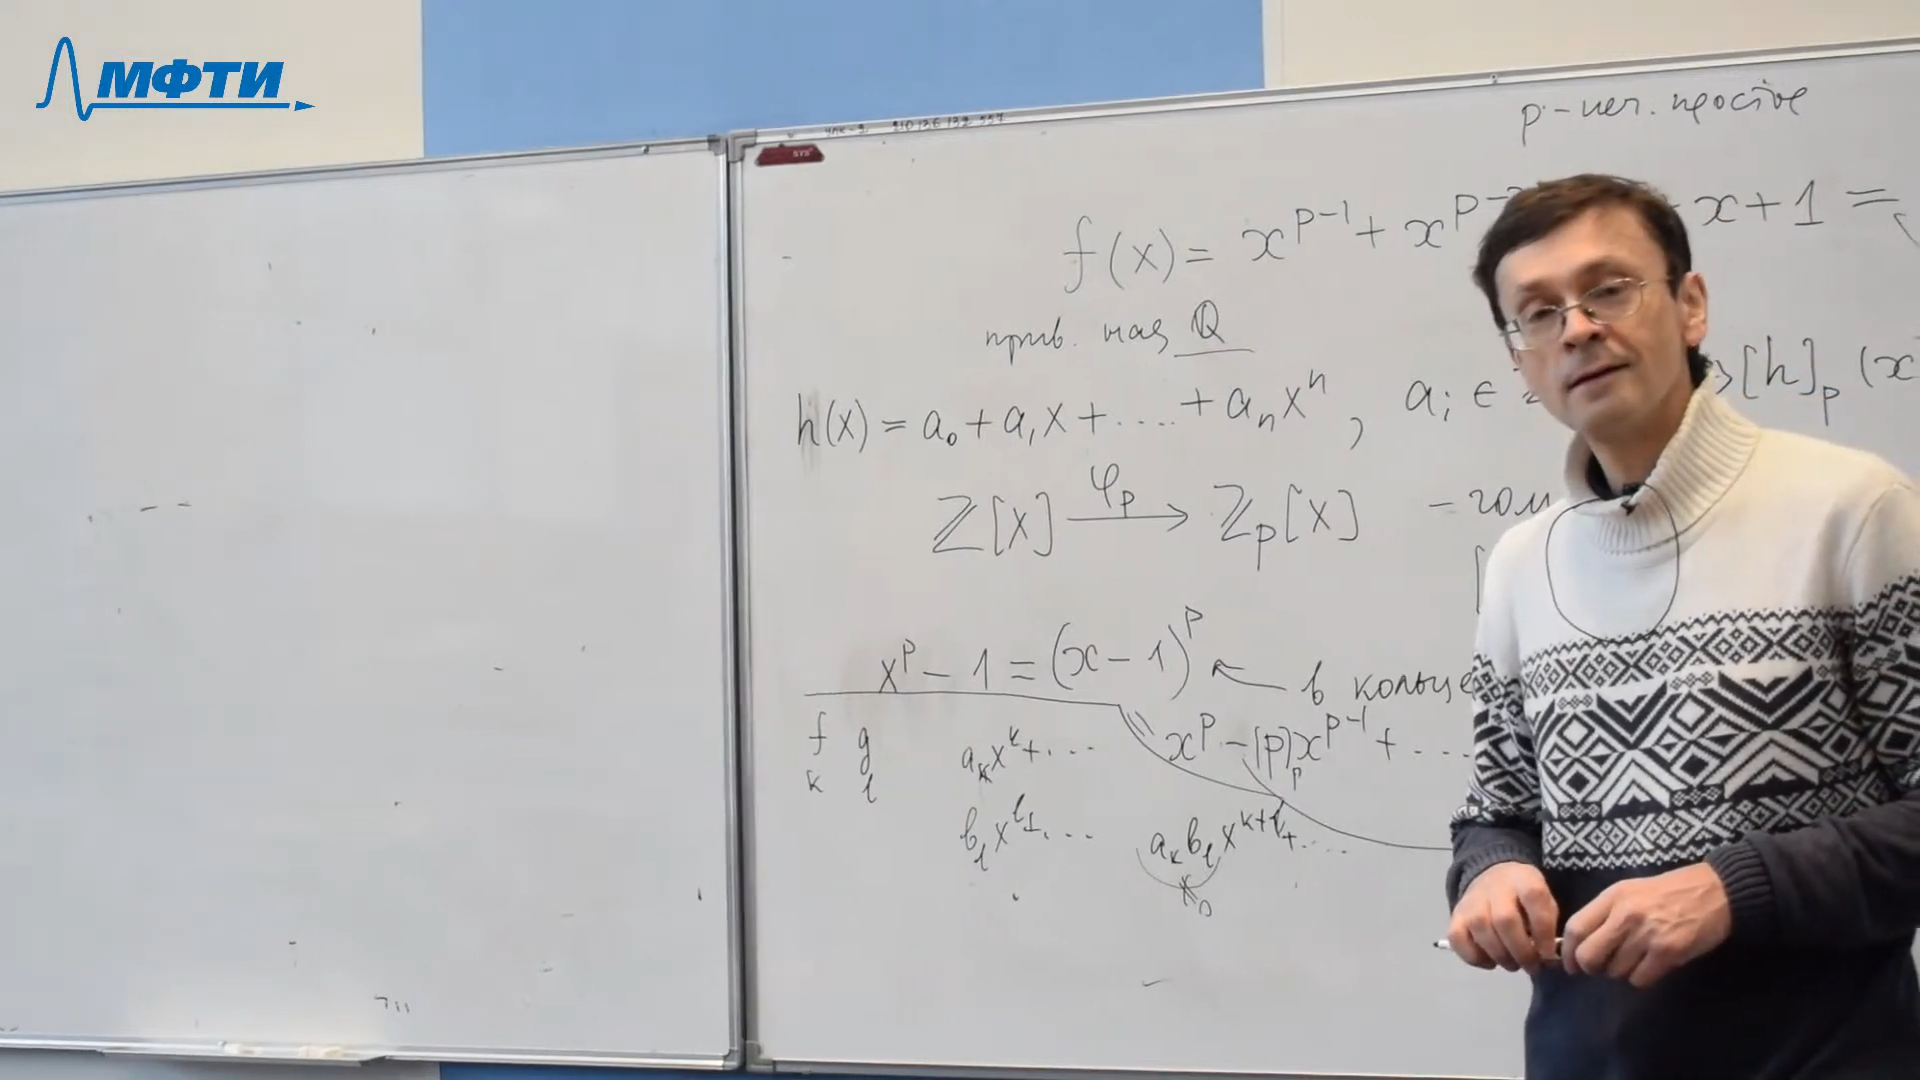 МФТИ
p - неч. простое
f(x) = x^{p-1} + x^{p-2} + x + 1 =
прив. над Q
h(x) = a_0 + a_1 x + .... + a_n x^n , a_i ∈ [h]_p (x
Z[x] \xrightarrow{φ_p} Z_p[x] - гом
x^p - 1 = (x - 1)^p ← в кольце
f g a_k x^k + ... x^p - [p]_p x^{p-1} + ....
k l
b_l x^l + ... a_k b_l x^{k+l} + ....
0